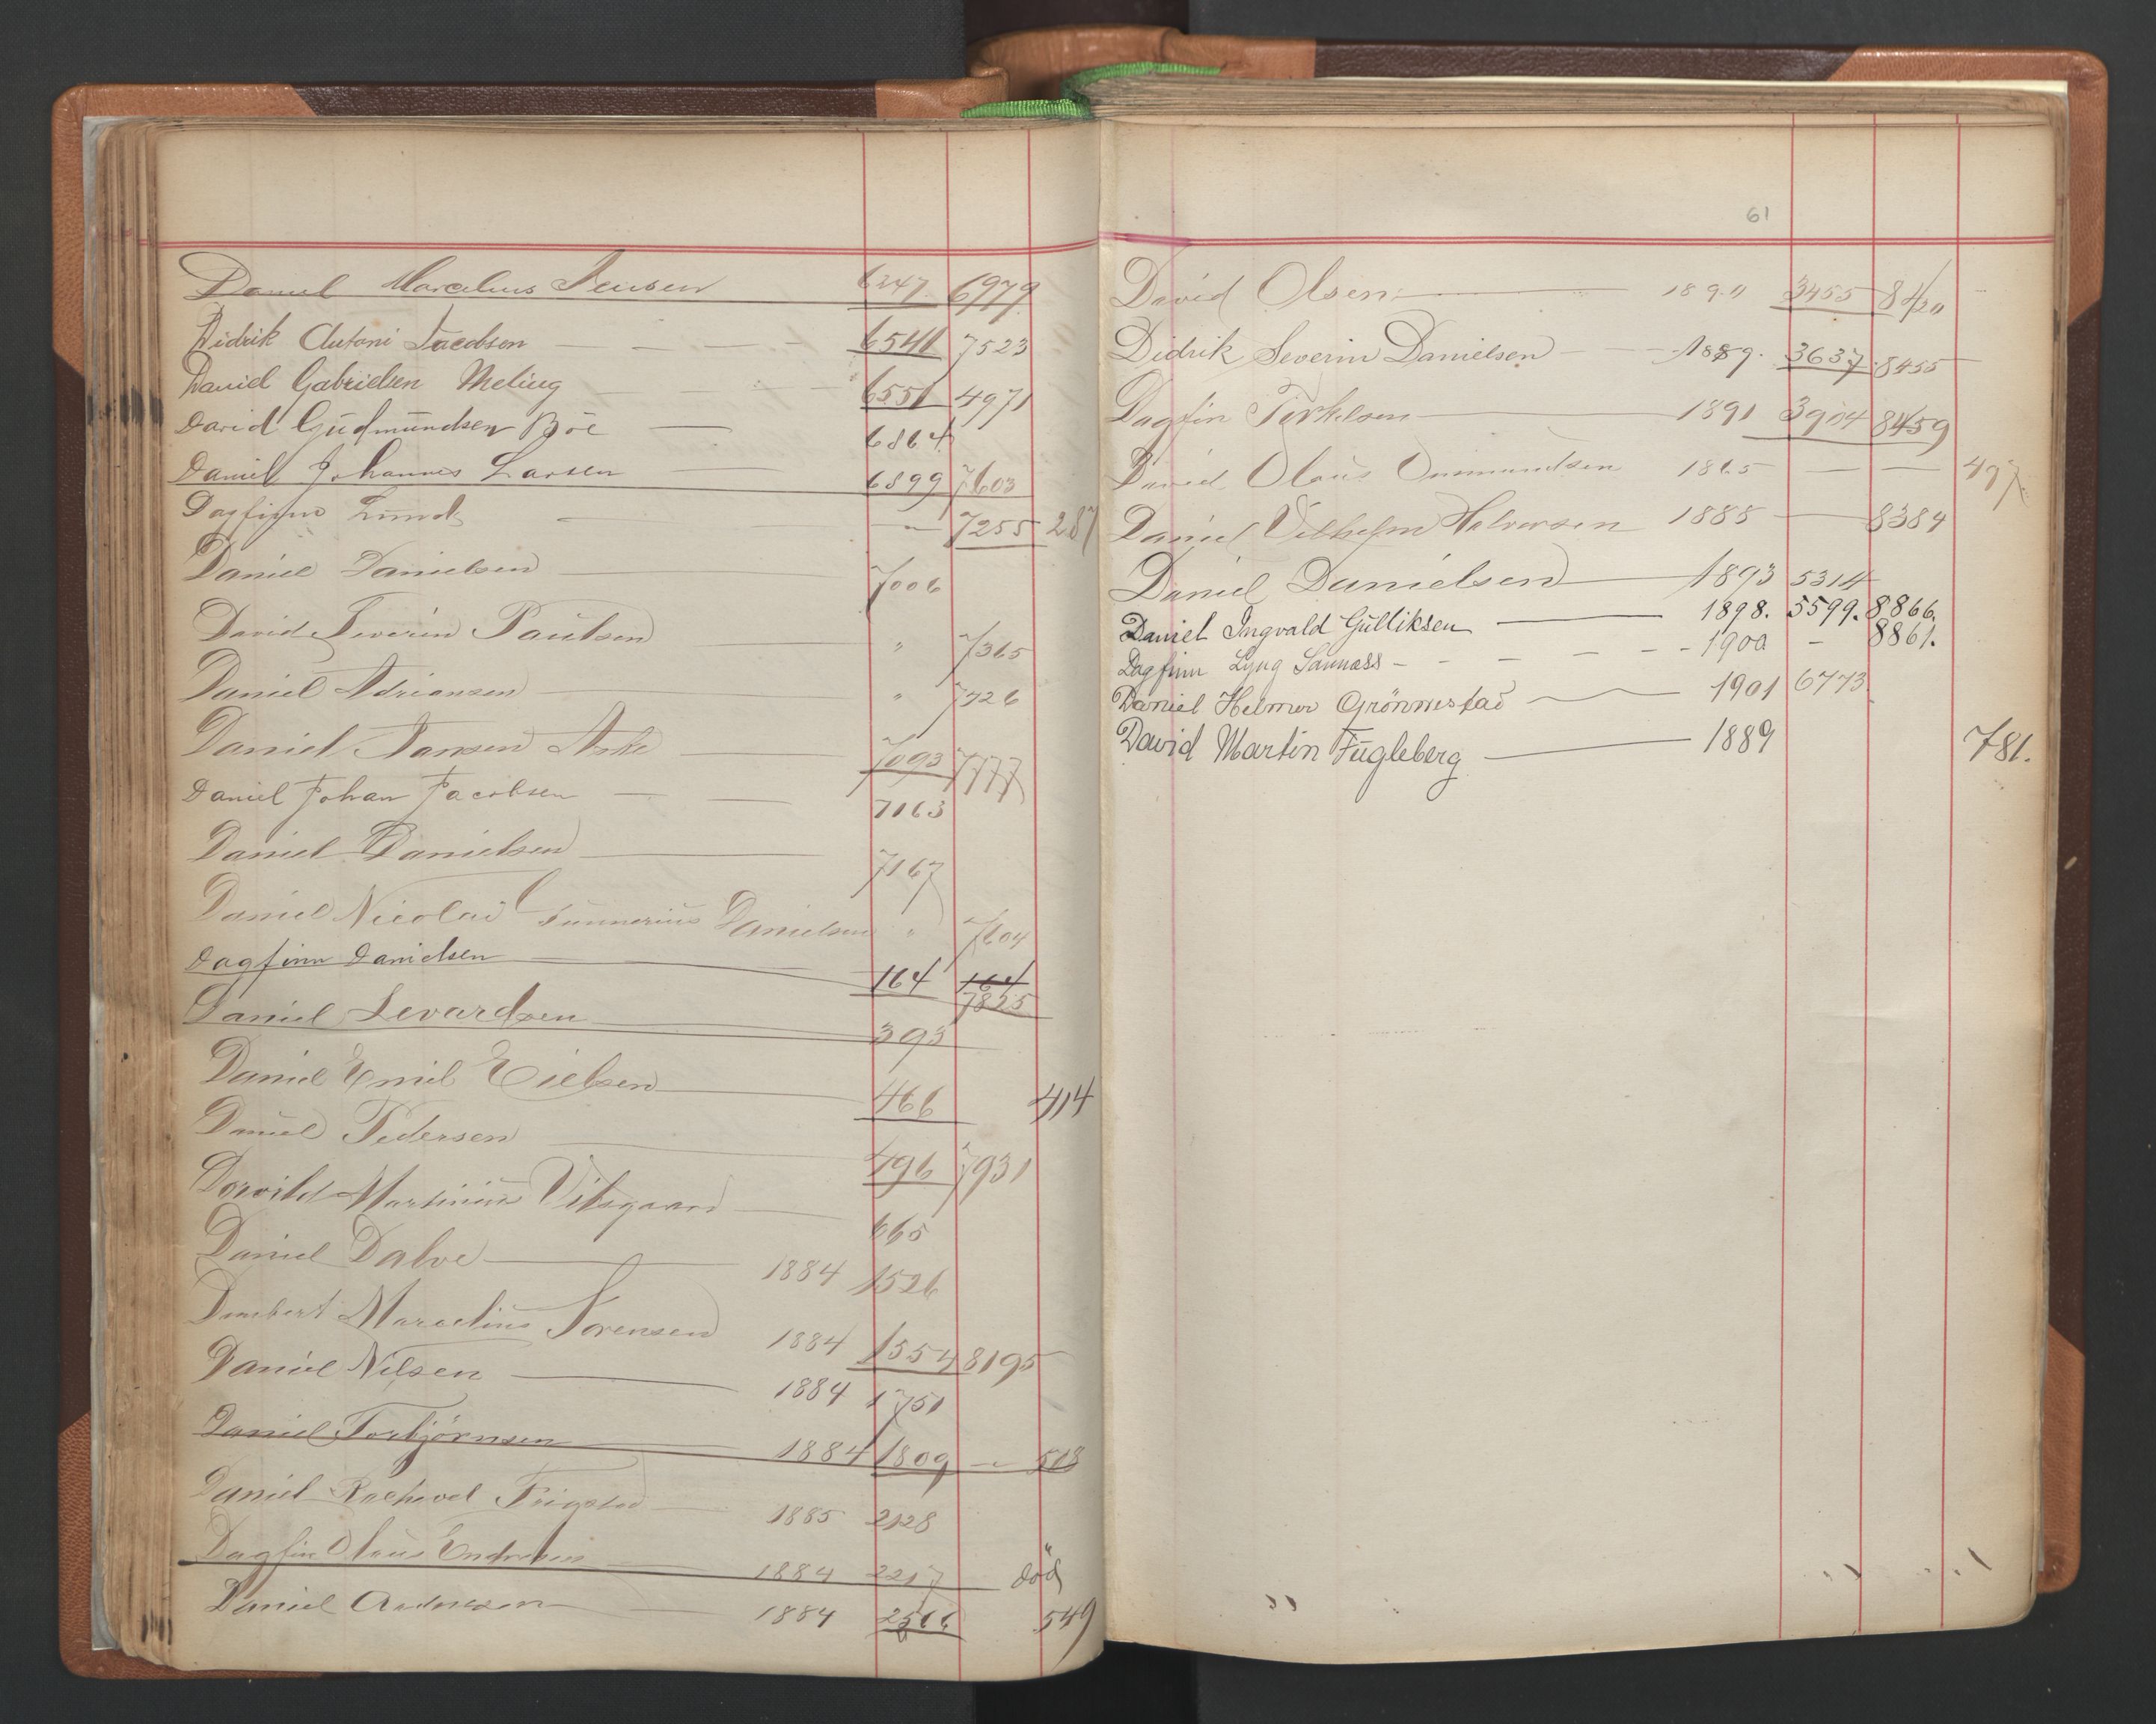 Daniel Marcelius Jensen 6247 6979
Didrik Antoni Jacobsen 6541 7523
Daniel Gabrielsen Meling 6551 4971
David Gudmundsen Böe 6864
Daniel Johannes Larsen 6899 7603
Dagfinn Lund " 7255 287
Daniel Danielsen 7006
David Severin Paulsen " 7365
Daniel Adriansen " 7426
Daniel Jansen Aske 7093 7777
Daniel Johan Jacobsen 7163
Daniel Danielsen 7167
Daniel Nicolai Gunnerius Danielsen " 7604
Dagfinn Danielsen 164 164
7825
Daniel Levardsen 393
Daniel Emil Eielsen 466 414
Daniel Pedersen 496 7931
Martinius 665
Daniel Dalve 1884 1526
Marcelius Sørensen 1884 1554 8195
Daniel Nilsen 1884 1751
Daniel Torbjörnsen 1884 1809 — 518
Daniel 1885 2128
Dagfin Olaus Endresen 1884 2217 död
Daniel Andreasen 1884 2566 549
61
David Olsen 1890 3455 8420
Didrik Severin Danielsen 1889. 3637. 8455
Dagfin Torkelsen 1891 3904 8459
David Olaus Ommundsen 1865 — — 477.
Daniel Vilhelm Halvorsen 1885 — 8384
Daniel Danielsen 1893 5314
Daniel Ingvald Gulliksen 1898. 5599. 8866.
Dagfinn Lyng Sannæss - - - - - 1900 - 8861.
Daniel Helmer Grönnestad 1901 6773.
David Martin Fugleberg 1889 781.